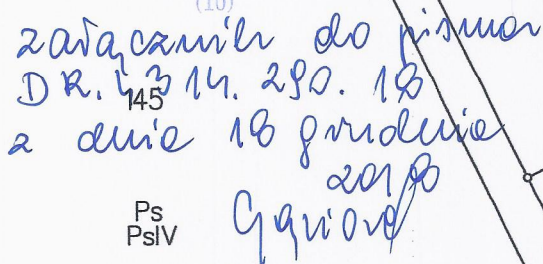 (10)
załącznik do pisma
DR.4314.290.18
145
z dnia 18 grudnia
2018
Ps
PsIV